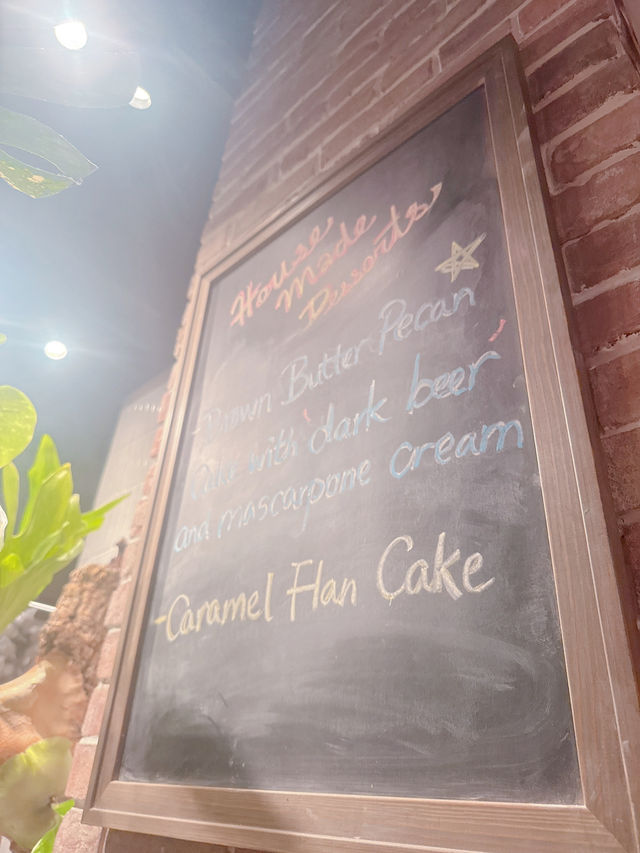 House
Made
Desserts
-Brown Butter Pecan
Cake with 'dark beer'
and mascarpone cream
-Caramel Flan Cake